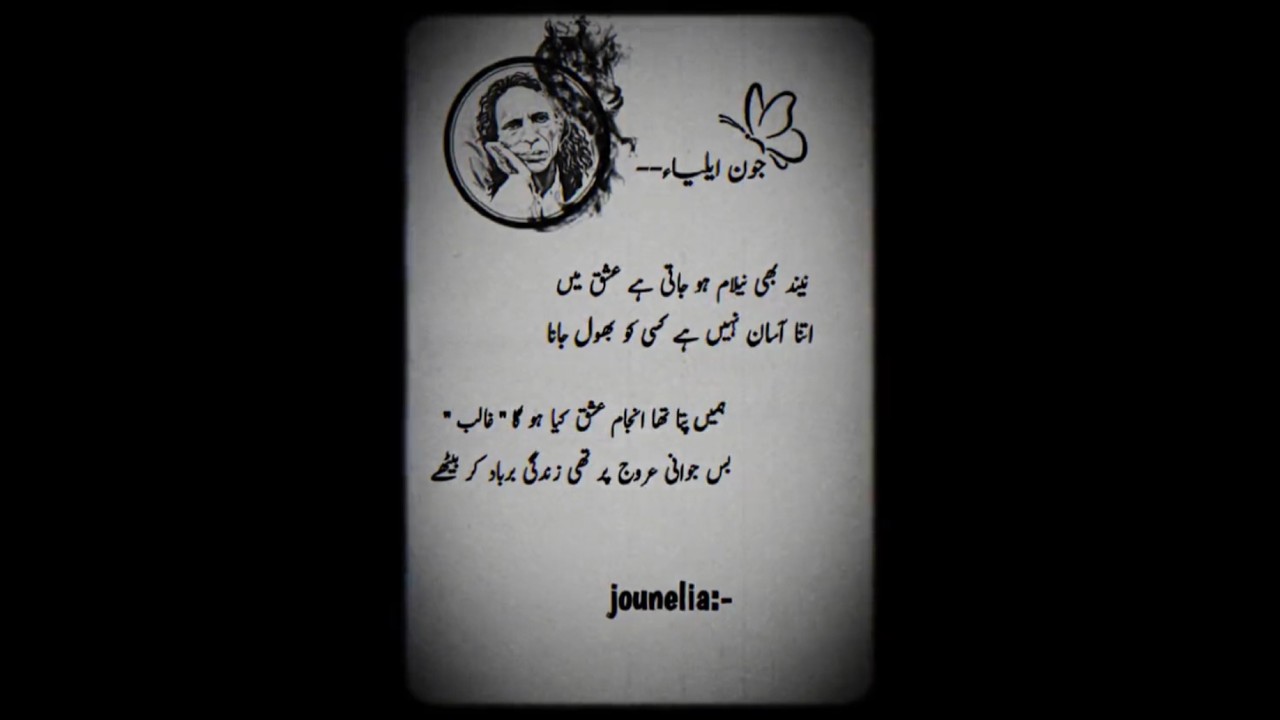 جون ایلیاء--
نیند بھی نیلام ہو جاتی ہے عشق میں
اتنا آسان نہیں ہے کسی کو بھول جانا
ہمیں پتا تھا انجام عشق کیا ہو گا " غالب "
بس جوانی عروج پر تھی زندگی برباد کر بیٹھے
jounelia:-